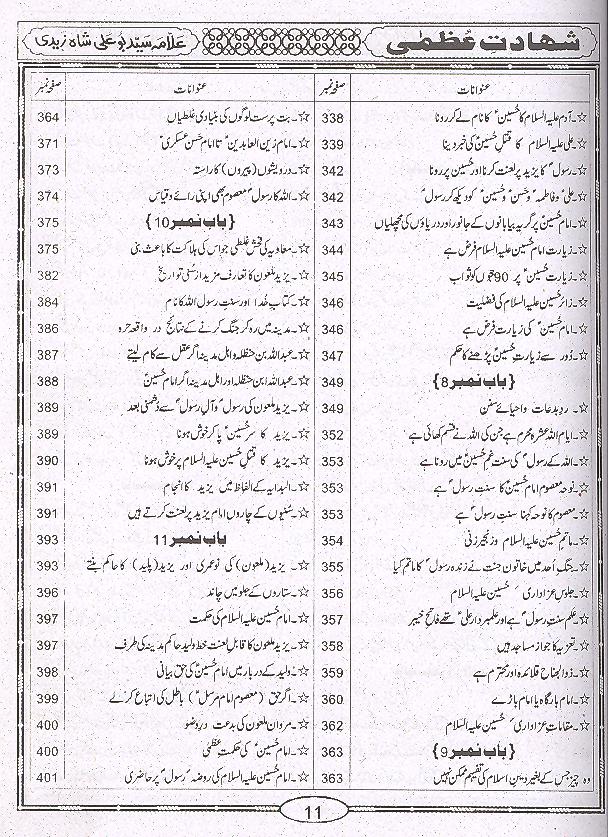 شھادتِ عُظمیٰ
علامہ سید بو علی شاہ زیدی
عنوانات صفحہ نمبر
☆۔آدم علیہ السلام کا حسینؑ کا نام لے کر رونا 338
☆۔علی علیہ السلام کا قتلِ حسینؑ کی خبر دینا 339
☆۔رسولؐ کا یزید پر لعنت کرنا اور حسینؑ پر رونا 342
☆۔علیؑ و فاطمہؑ و حسنؑ و حسینؑ کو دیکھ کر رسولؐ 342
☆۔امام حسینؑ پر گریہ بیابانوں کے جانور اور دریاؤں کی مچھلیاں 343
☆۔زیارت امام حسین علیہ السلام فرض ہے 344
☆۔زیارتِ حسینؑ پر 90 حجوں کو ثواب 345
☆۔زائر حسین علیہ السلام کی فضلیت 346
☆۔امام حسینؑ کی زیارت فرض ہے 346
☆۔دُور سے زیارتِ حسینؑ پڑھنے کا حکم 347
{باب نمبر 8} 349
☆۔ ردِ بدعات و احیائے سنن 349
☆۔ایام اللہ عشرہ محرم ہے جن کی اللہ نے قسم کھائی ہے 352
☆۔اللہ کے رسولؐ کی سنت غمِ حسینؑ میں رونا ہے 353
☆۔نوحہ معصوم امام حسینؑ کا سنتِ رسولؐ ہے 353
☆۔معصوم کا نوحہ کہنا سنت رسولؐ ہے 353
☆۔ماتمِ حسین علیہ السلام و زنجیر زنی 354
☆۔جنگ اُحد میں خاتون جنت نے زندہ رسولؐ کا ماتم کیا 355
☆۔جلوس عزاداری حسین علیہ السلام 356
☆۔علم سنتِ رسولؐ ہے اور علمبردار علیؑ تھے فاتح خیبر 357
☆۔تعزیہ کا جواز مساجد ہیں 358
☆۔ذوالجناح قلائدہ اور محترم ہے 359
☆۔امام بارگاہ یا امام باڑے 360
☆۔مقاماتِ عزاداری حسین علیہ السلام 362
{باب نمبر 9} 363
وہ چیز جس کے بغیر دین اسلام کی تفہیم ممکن نہیں 363
عنوانات صفحہ نمبر
☆۔بت پرست لوگوں کی بنیادی غلطیاں 364
☆۔امام زین العابدینؑ تا امام حسن عسکریؑ 371
☆۔درویشوں (پیروں) کا راستہ 373
☆۔اللہ کا رسولؐ معصوم بھی اپنی رائے و قیاس 374
{باب نمبر 10} 375
☆۔معاویہ کی فحش غلطی جو اس کی ہلاکت کا باعث بنی 375
☆۔یزید ملعون کا تعارف مزید از سُنی تواریخ 382
☆۔کتابِ خُدا اور سنتِ رسول اللہ کا نام 384
☆۔مدینہ میں رہ کر جنگ کرنے کے نتائج در واقعہ حرہ 386
☆۔عبداللہ ابن حنظلہ و اہل مدینہ اگر عقل سے کام لیتے 387
☆۔عبداللہ ابن حنظلہ اور اہل مدینہ اگر امام حسینؑ 388
☆۔یزید ملعون کی رسولؐ و آلِ رسولؐ سے دشمنی بعد 389
☆۔یزید کا سرِ حسینؑ پا کر خوش ہونا 389
☆۔یزید کا قتلِ حسین علیہ السلام پر خوش ہونا 390
☆۔البدایہ کے الفاظ میں یزید کا انجام 391
☆۔سُنیوں کے چاروں امام یزید پر لعنت کرتے ہیں 391
باب نمبر 11 393
☆۔یزید (ملعون) کی نوعمری اور یزید (پلید) کا حاکم بنتے 393
☆۔ستاروں کے جلو میں چاند 396
☆۔امام حسین علیہ السلام کی حکمت 397
☆۔یزید ملعون کا قابل لعنت خط ولید حاکم مدینہ کی طرف 397
☆۔ولید کے دربار میں امام حسینؑ کی حق بیانی 398
☆۔اگر حق (معصوم امام مرسل) باطل کی اتباع کرلے 399
☆۔مروان ملعون کی بدعت در وضو 400
☆۔امام حسینؑ کی حکمتِ عظمیٰ 400
☆۔امام حسین علیہ السلام کی روضہ رسولؐ پر حاضری 401
11